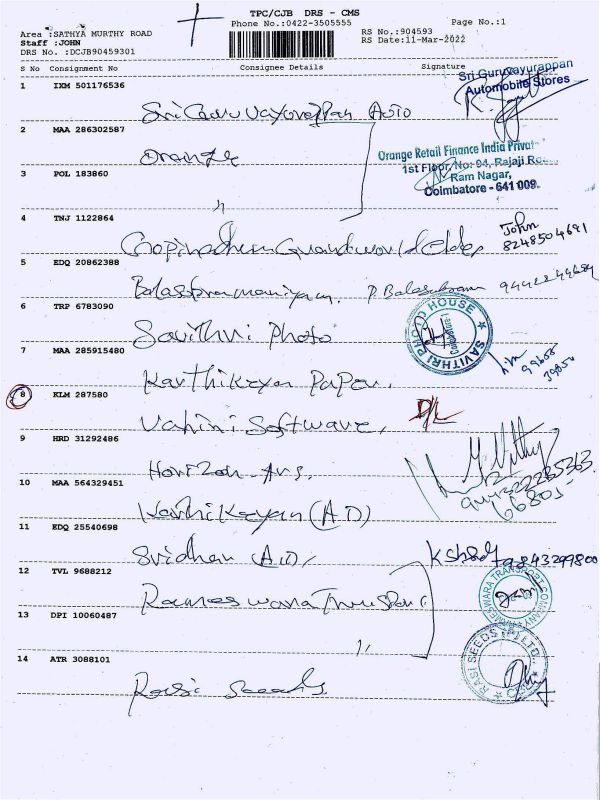 TPC/CJB DRS - CMS
Phone No.:0422-3505555
Page No.:1
Area :SATHYA MURTHY ROAD
RS No.:904593
Staff :JOHN
RS Date:11-Mar-2022
DRS No. :DCJB90459301
S No Consignment No Consignee Details Signature
1 IXM 501176536
Sri Guruvayurappan Auto
Sri Guruvayurappan
Automobile Stores
2 MAA 286302587
Orange
Orange Retail Finance India Privat
1st Floor, No: 94, Rajaji Ro
Ram Nagar,
Coimbatore - 641 009.
3 POL 183860
"
4 TNJ 1122864
John
8248504691
5 EDQ 20862388
P. Balasubram
6 TRP 6783090
Savithri Photo
SAVITHRI PHOTO HOUSE
Coimbatore
7 MAA 285915480
Karthikeyan Paper
99655
39850
8 KLM 287580
Vahini Software
D/L
9 HRD 31292486
Horizon
10 MAA 564329451
Karthikeyan (A.D)
11 EDQ 25540698
Sridhar (A.D)
9843299800
12 TVL 9688212
Rameswara Transport
RAMESWARA TRANSPORT COMPANY
13 DPI 10060487
"
14 ATR 3088101
Rasi Seeds
RASI SEEDS (P) LTD.,